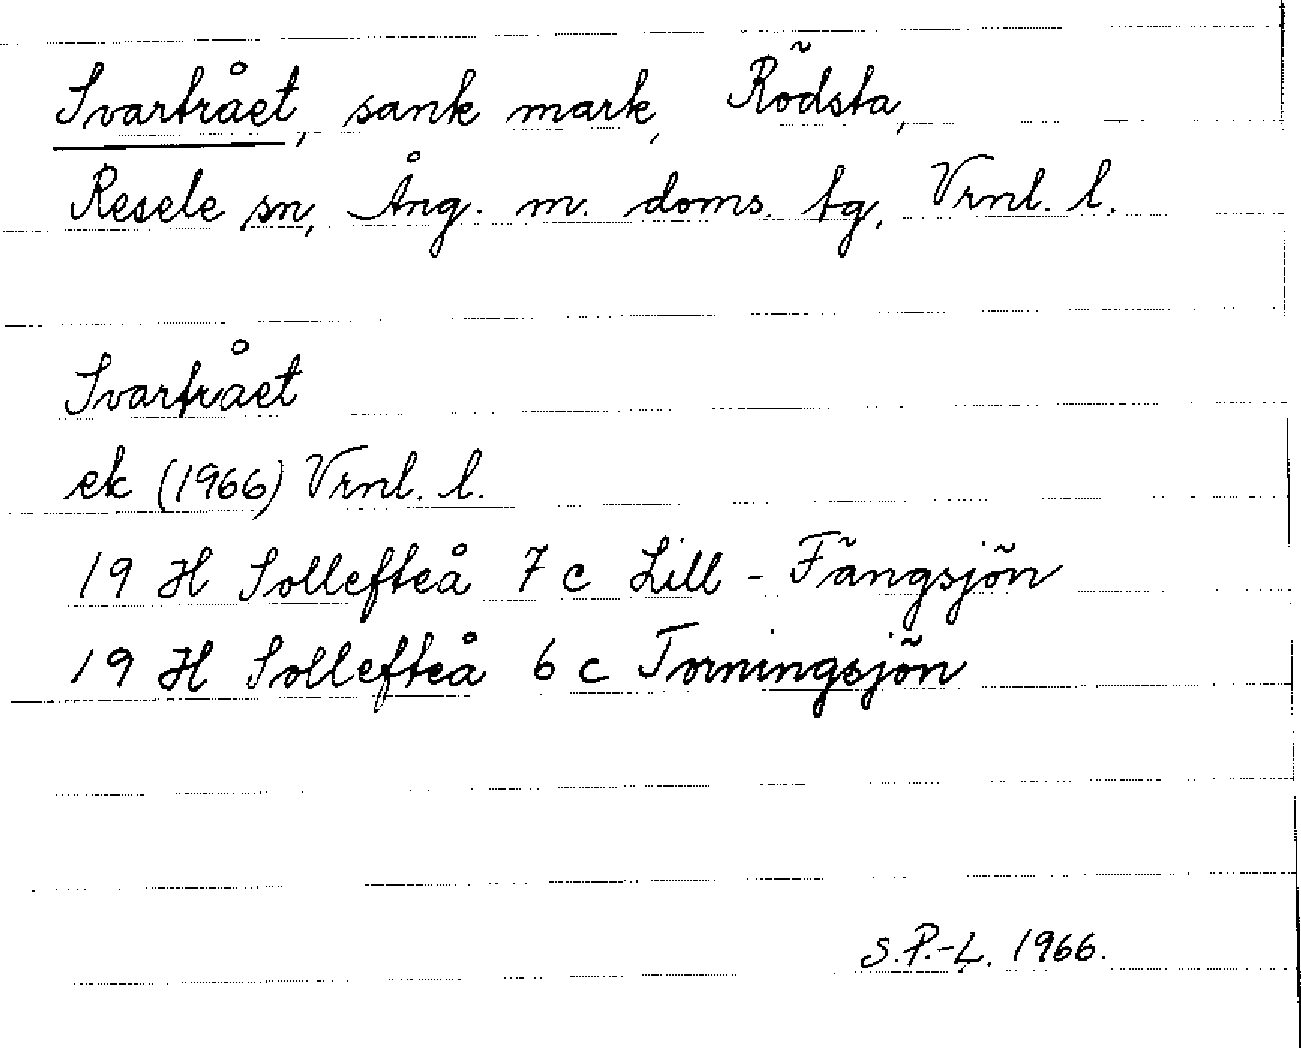 Svartrået, sank mark, Rödsta,
Resele sn, Ång. m. doms. tg, Vrnl. l.
Svartrået
ek (1966) Vrnl. l.
19 H Sollefteå 7 c Lill-Fängsjön
19 H Sollefteå 6 c Torningsjön
S.P.-L. 1966.